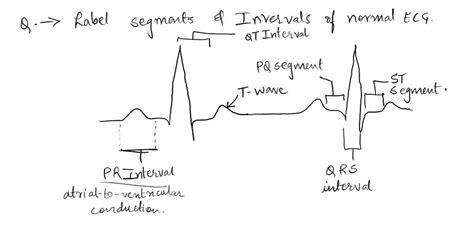 Q. → Label segments & Invervals of normal ECG.
QT Interval
PQ segment
ST
segment.
T-wave
PR Interval
atrial-to-ventricular
conduction.
QRS
interval